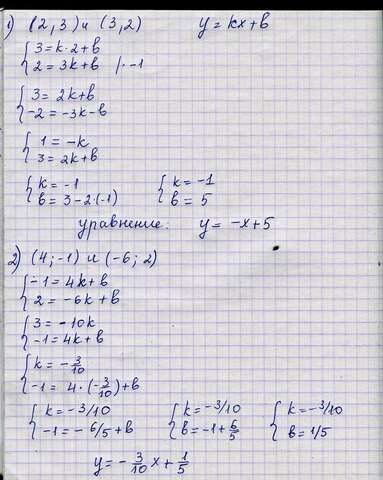 1) (2,3) и (3,2) y = kx+b
{ 3 = k·2+b
{ 2 = 3k+b /·-1
{ 3 = 2k+b
{ -2 = -3k-b
{ 1 = -k
{ 3 = 2k+b
{ k = -1 { k = -1
{ b = 3-2·(-1) { b = 5
уравнение: y = -x+5
2) (4;-1) и (-6;2)
{ -1 = 4k+b
{ 2 = -6k+b
{ 3 = -10k
{ -1 = 4k+b
{ k = -3/10
{ -1 = 4·(-3/10)+b
{ k = -3/10 { k = -3/10 { k = -3/10
{ -1 = -6/5+b { b = -1+6/5 { b = 1/5
y = -3/10 x + 1/5